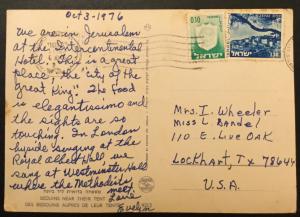 Oct 3-1976
We are in Jerusalem
at the Intercontinental
Hotel. This is a great
place, "the city of the
Great King". The food
is elegantissimo and
the sights are so
touching. In London
beside singing at the
Royal Albert Hall we
sang at Westminster Hall
where the Methodists meet
Love
Evelyn
0.50
ישראל
ISRAEL
1.30
ישראל
ISRAEL
Mrs. I Wheeler
Miss L
110 E. Live Oak
Lockhart, Tx 78644
U.S.A.
BEDUINS NEAR THEIR TENT
DES BEDOUINS AUPRES DE LEUR TENTE